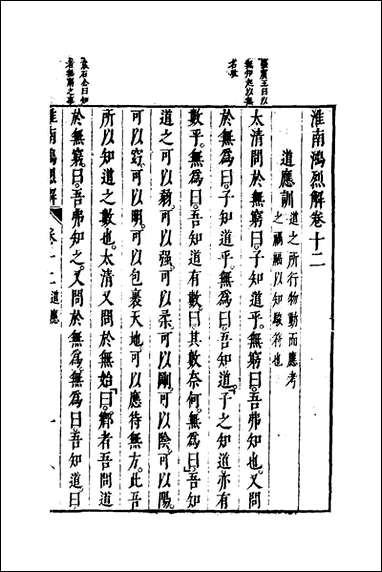 淮南鴻烈解卷十二
道應訓 道之所行物動而應考
之禍福以知驗符也
太清問於無窮曰子知道乎無窮曰吾弗知也又問
於無為曰子知道乎無為曰吾知道子之知道亦有
數乎無為曰吾知道有數曰其數奈何無為曰吾知
道之可以弱可以強可以柔可以剛可以陰可以陽
可以窈可以明可以包裹天地可以應待無方此吾
所以知道之數也太清又問於無始曰鄉者吾問道
於無窮曰吾弗知之又問於無為無為曰吾知道曰
淮南鴻烈解 卷十二 道應 一